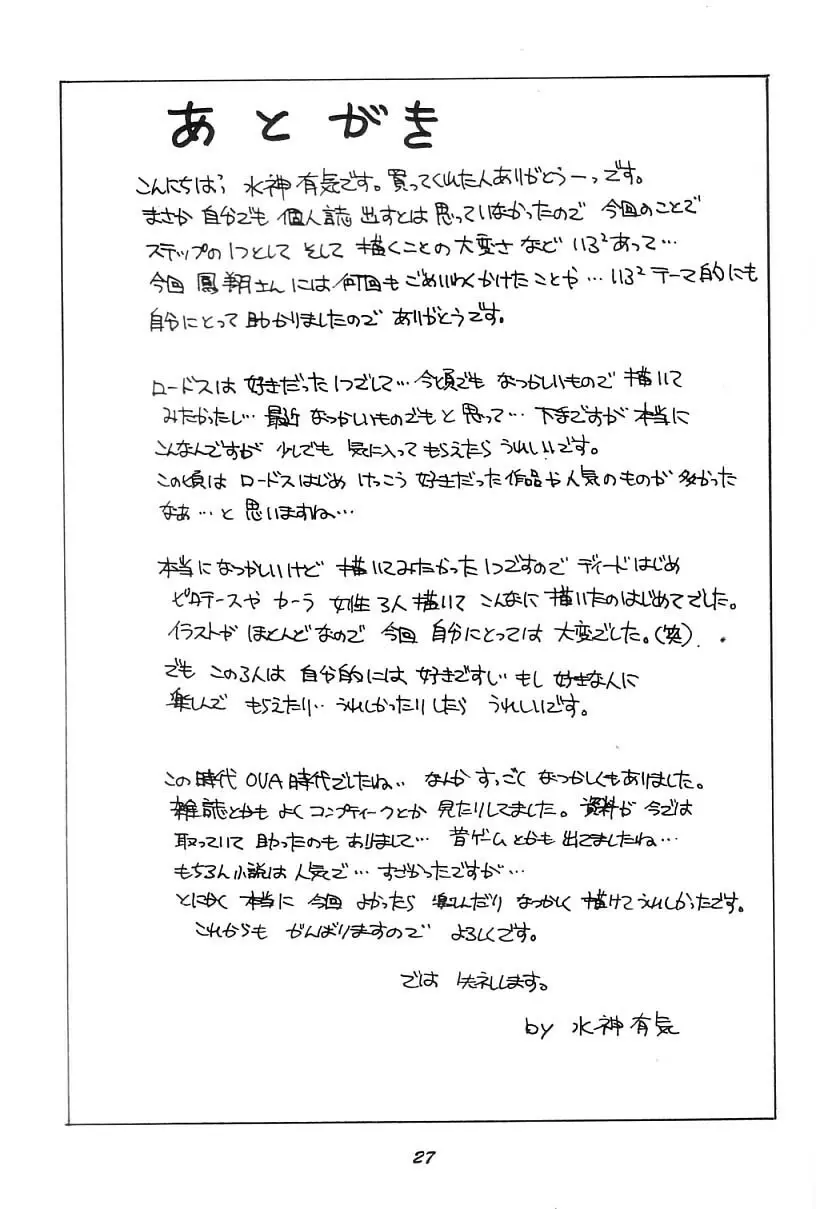 あとがき
こんにちはっ 水神有気です。買ってくれた人ありがとうーっです。
まさか 自分でも 個人誌 出すとは 思っていなかったので 今回のことで
ステップの1つとして そして 描くことの大変さ など いろ²あって…
今回 鳳翔さん には 何回も ごめいわくかけたことや… いろ² テーマ的にも
自分にとって 助かりましたので ありがとうです。
ロードスは 好きだった1つでして… 今頃でも なつかしいもので 描いて
みたかったし… 最近 なつかしいものでもと 思って… 下手ですが 本当に
こんなんですが 少しでも 気に入って もらえたら うれしいです。
この頃は ロードスはじめ けっこう 好きだった 作品や人気のものが 多かった
なぁ…と 思いますね…
本当に なつかしいけど 描いてみたかった1つですので ディードはじめ
ピロテースや カーラ 女性3人 描いて こんなに 描いたのはじめてでした。
イラストが ほとんどなので 今回 自分にとっては 大変でした。(笑)
でも この3人は 自分的には 好きですし もし 好きな人に
楽しんで もらえたり‥ うれしかったりしたら うれしいです。
この時代 OVA時代でしたね‥ なんか すっごく なつかしくもありました。
雑誌とかも よく コンプティークとか 見たりしてました。資料が 今では
取っていて 助ったのも ありまして… 昔ゲームとかも 出てましたね…
もちろん小説は 人気で… すごかったですが…
とにかく 本当に 今回 よかったら 楽しんだり なつかしく 描けてうれしかったです。
これからも がんばりますので よろしくです。
では 失礼します。
by 水神有気
27